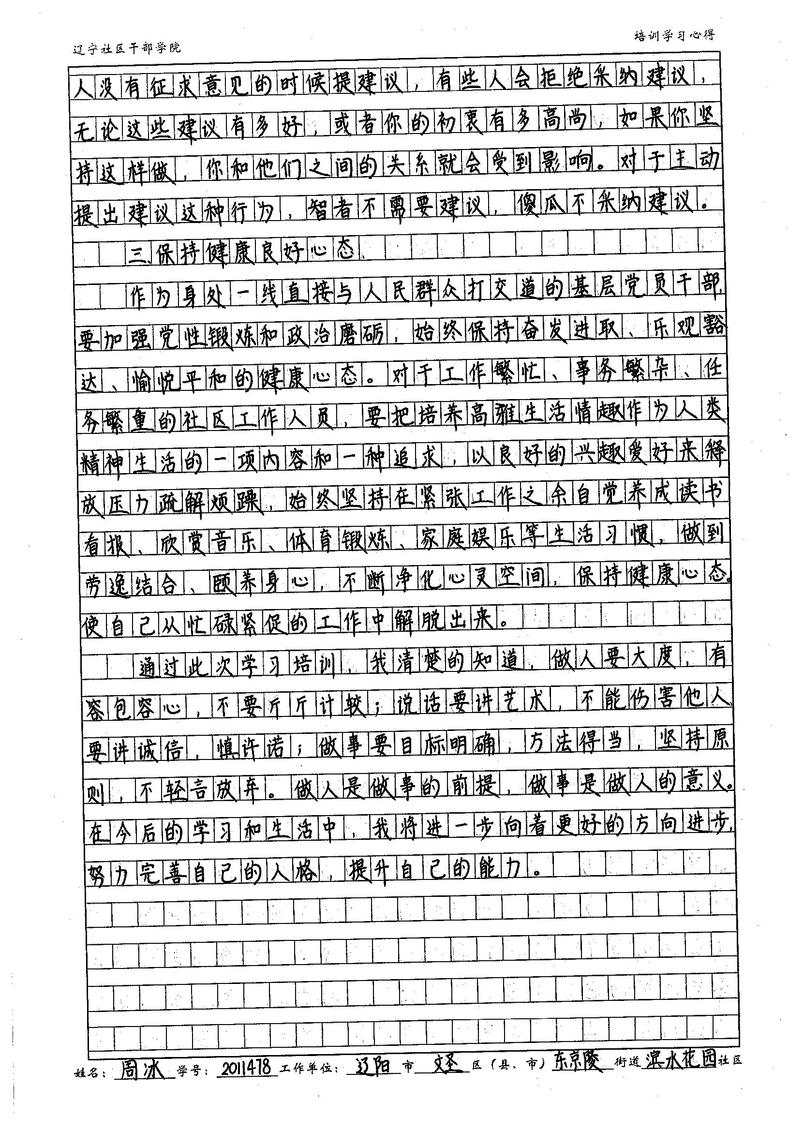 辽宁社区干部学院 培训学习心得
人没有征求意见的时候提建议，有些人会拒绝采纳建议，
无论这些建议有多好，或者你的初衷有多高尚，如果你坚
持这样做，你和他们之间的关系就会受到影响。对于主动
提出建议这种行为，智者不需要建议，傻瓜不采纳建议。
三.保持健康良好心态
作为身处一线直接与人民群众打交道的基层党员干部，
要加强党性锻炼和政治磨砺，始终保持奋发进取、乐观豁
达、愉悦平和的健康心态。对于工作繁忙、事务繁杂、任
务繁重的社区工作人员，要把培养高雅生活情趣作为人类
精神生活的一项内容和一种追求，以良好的兴趣爱好来释
放压力疏解烦躁，始终坚持在紧张工作之余自觉养成读书
看报、欣赏音乐、体育锻炼、家庭娱乐等生活习惯，做到
劳逸结合、颐养身心，不断净化心灵空间，保持健康心态。
使自己从忙碌紧促的工作中解脱出来。
通过此次学习培训，我清楚的知道，做人要大度，有
容包容心，不要斤斤计较；说话要讲艺术，不能伤害他人
要讲诚信，慎许诺；做事要目标明确，方法得当，坚持原
则，不轻言放弃。做人是做事的前提，做事是做人的意义。
在今后的学习和生活中，我将进一步向着更好的方向进步，
努力完善自己的人格，提升自己的能力。
姓名：周冰 学号：2011478 工作单位：辽阳 市 文圣 区（县、市）东京陵 街道 滨水花园 社区